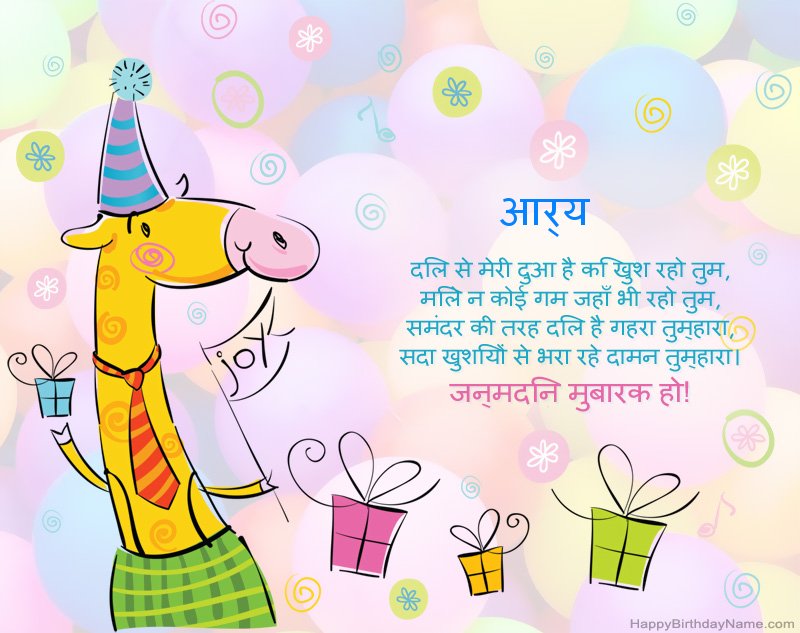 आर्‌य
दलि से मेरी दुआ है कि खुश रहो तुम,
मलिे न कोई गम जहाँ भी रहो तुम,
समंदर की तरह दलि है गहरा तुम्‌हारा,
सदा खुशयिों से भरा रहे दामन तुम्‌हारा।
जन्‌मदनि मुबारक हो!
joy
HappyBirthdayName.com